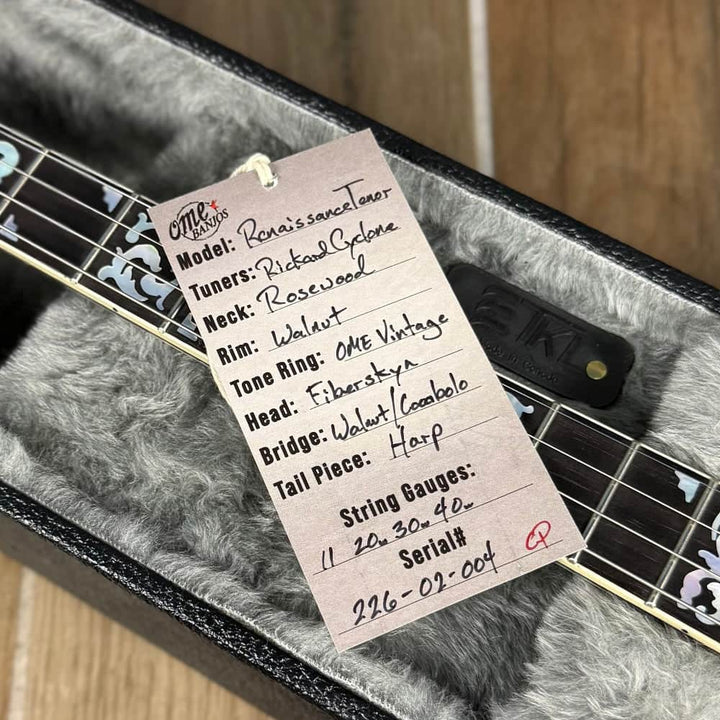 OME
BANJOS
Model: Renaissance Tenor
Tuners: Rickard Cyclone
Neck: Rosewood
Rim: Walnut
Tone Ring: OME Vintage
Head: Fiberskyn
Bridge: Walnut/Cocobolo
Tail Piece: Harp
String Gauges:
11 20w 30w 40w
Serial#
226-02-004 CP
TKL
Made in Canada